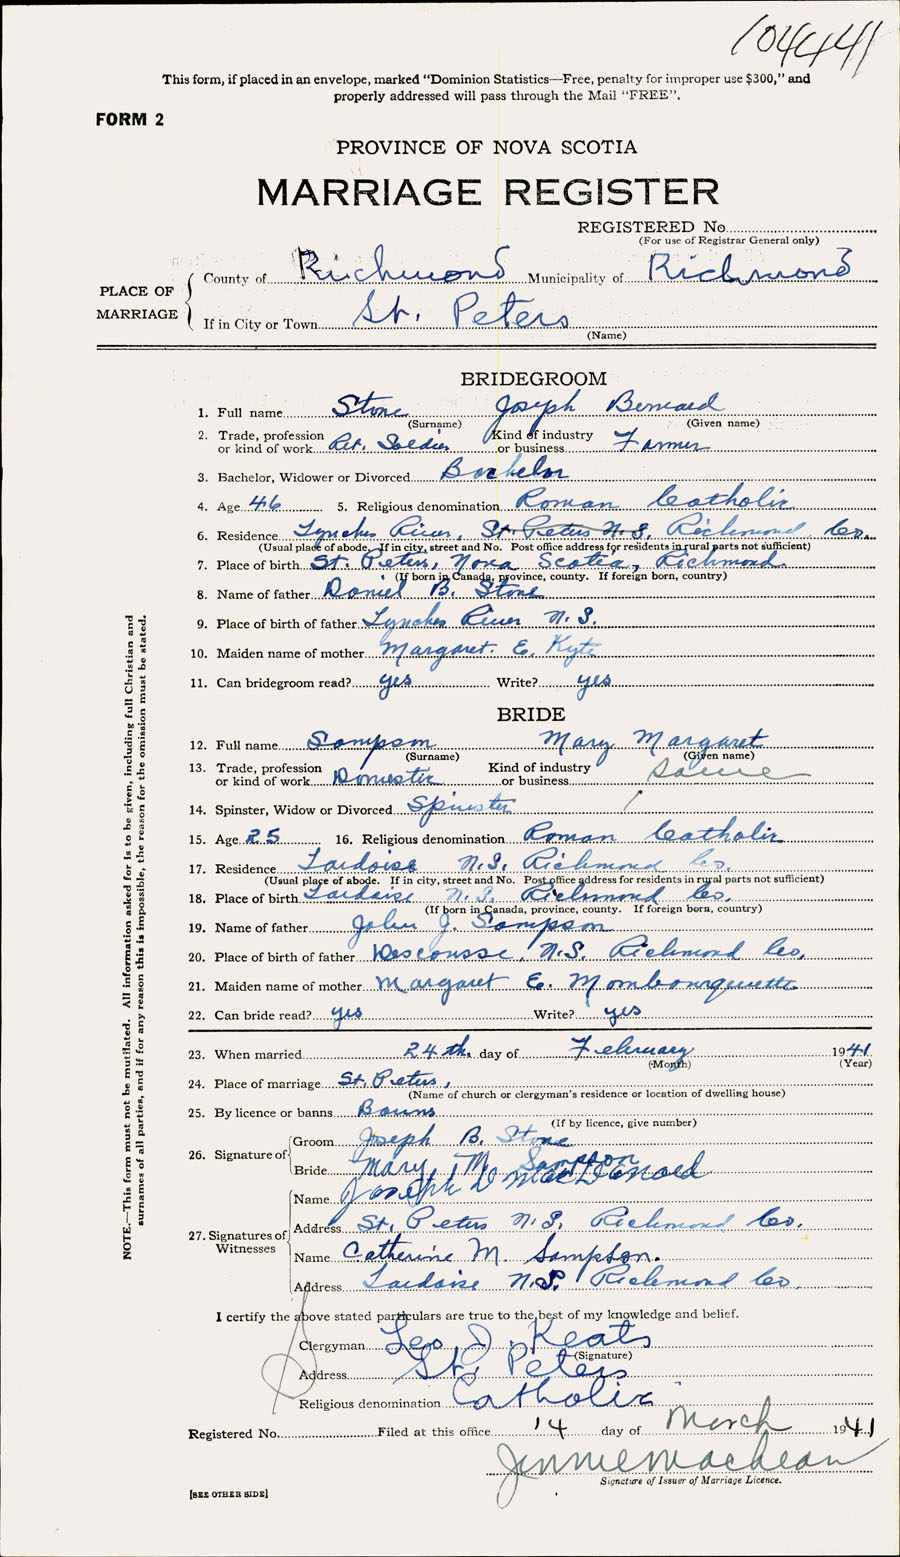 104441
This form, if placed in an envelope, marked "Dominion Statistics—Free, penalty for improper use $300," and
properly addressed will pass through the Mail "FREE".
FORM 2
PROVINCE OF NOVA SCOTIA
MARRIAGE REGISTER
REGISTERED No.
(For use of Registrar General only)
PLACE OF MARRIAGE
County of Richmond Municipality of Richmond
If in City or Town St. Peters
(Name)
BRIDEGROOM
1. Full name Stone Joseph Bernard
(Surname) (Given name)
2. Trade, profession or kind of work Ret. Soldier Kind of industry or business Farmer
3. Bachelor, Widower or Divorced Bachelor
4. Age 46 5. Religious denomination Roman Catholic
6. Residence Lynches River, St. Peters N.S. Richmond Co.
(Usual place of abode. If in city, street and No. Post office address for residents in rural parts not sufficient)
7. Place of birth St. Peters, Nova Scotia, Richmond
(If born in Canada, province, county. If foreign born, country)
8. Name of father Daniel B. Stone
9. Place of birth of father Lynches River N.S.
10. Maiden name of mother Margaret. E. Kyte
11. Can bridegroom read? yes Write? yes
BRIDE
12. Full name Sampson Mary Margaret
(Surname) (Given name)
13. Trade, profession or kind of work Domestic Kind of industry or business same
14. Spinster, Widow or Divorced Spinster
15. Age 25 16. Religious denomination Roman Catholic
17. Residence Lardoise N.S. Richmond Co.
(Usual place of abode. If in city, street and No. Post office address for residents in rural parts not sufficient)
18. Place of birth Lardoise N.S. Richmond Co.
(If born in Canada, province, county. If foreign born, country)
19. Name of father John J. Sampson
20. Place of birth of father Descousse, N.S. Richmond Co.
21. Maiden name of mother Margaret E. Mombourquette
22. Can bride read? yes Write? yes
23. When married 24th. day of February 1941
(Month) (Year)
24. Place of marriage St. Peters,
(Name of church or clergyman's residence or location of dwelling house)
25. By licence or banns Banns
(If by licence, give number)
26. Signature of
Groom Joseph B. Stone
Bride Mary. M. Sampson
27. Signatures of Witnesses
Name Joseph D MacDonald
Address St. Peters N.S. Richmond Co.
Name Catherine M. Sampson.
Address Lardoise N.S. Richmond Co.
I certify the above stated particulars are true to the best of my knowledge and belief.
Clergyman Leo J. Keats
(Signature)
Address St. Peters
Religious denomination Catholic
Registered No. Filed at this office 14 day of March 1941
Jennie MacLean
Signature of Issuer of Marriage Licence.
[SEE OTHER SIDE]
NOTE.—This form must not be mutilated. All information asked for is to be given, including full Christian and
surnames of all parties, and if for any reason this is impossible, the reason for the omission must be stated.